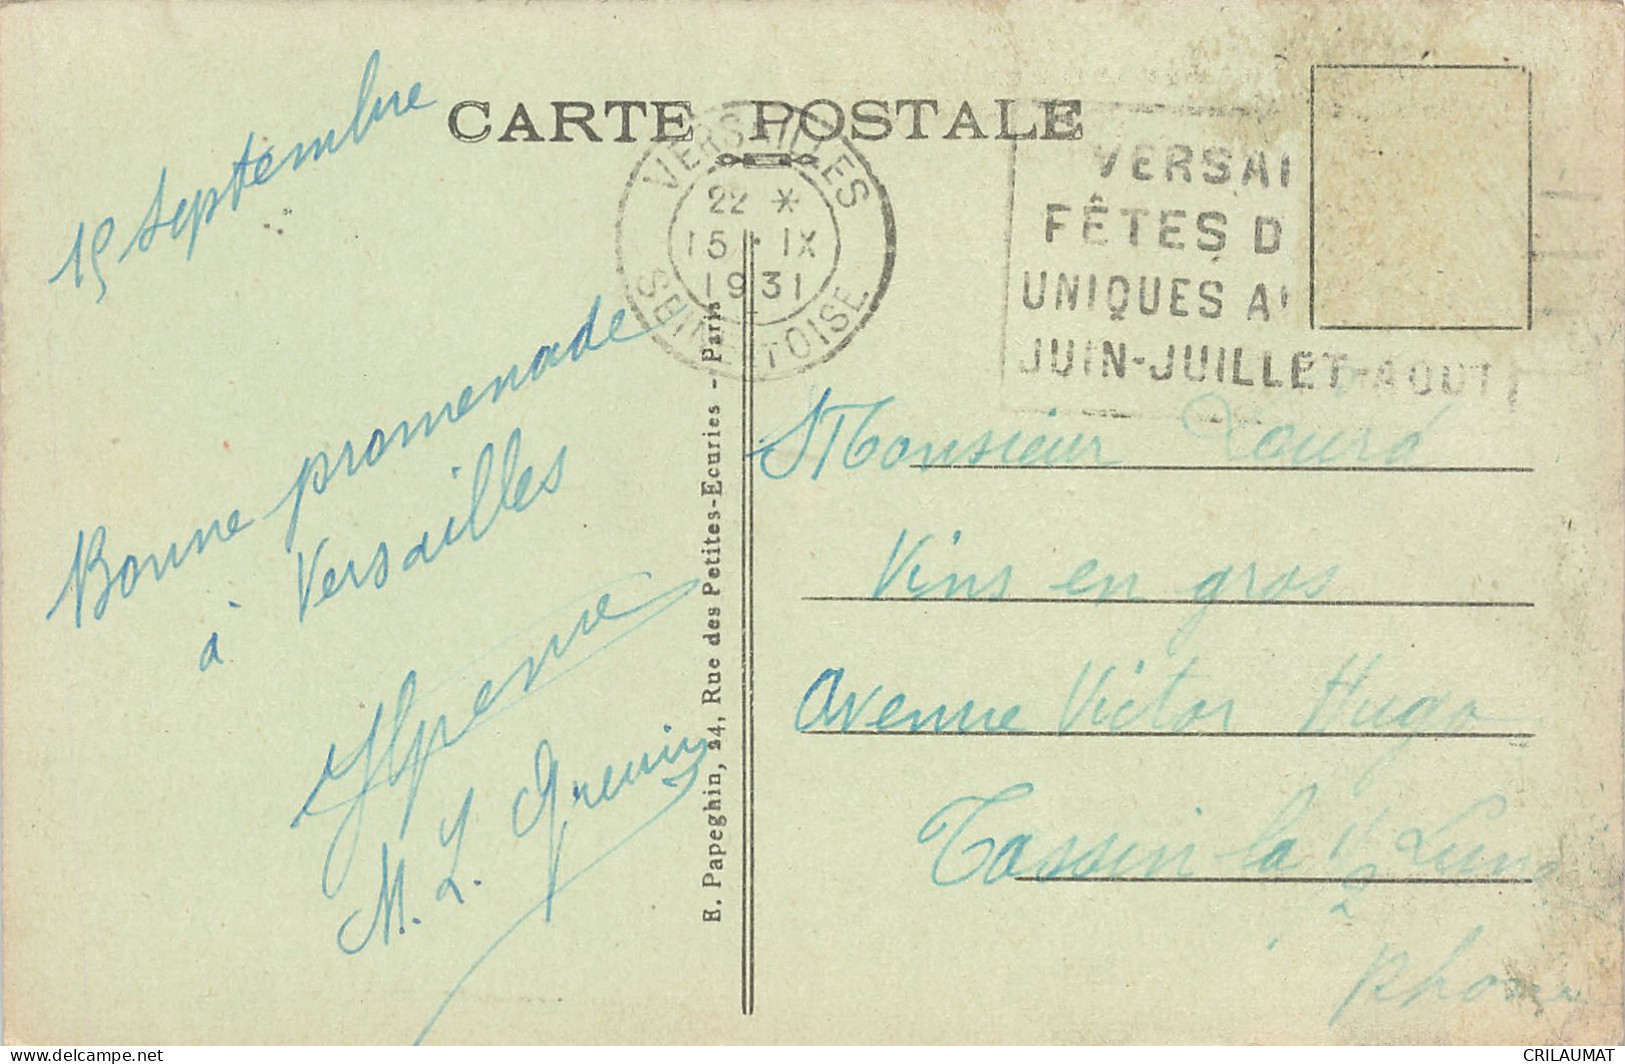 CARTE POSTALE
15 Septembre
VERSAILLES
22 *
15 · IX
1931
SEINE ET OISE
VERSAI
FÊTES D
UNIQUES A
JUIN-JUILLET-AOUT
Bonne promenade
à Versailles
M. L.
E. Papeghin, 34, Rue des Petites-Ecuries - Paris
Monsieur
Vins en gros
Avenue Victor Hugo
Tassin la 1/2 Lune
Rhone
CRILAUMAT